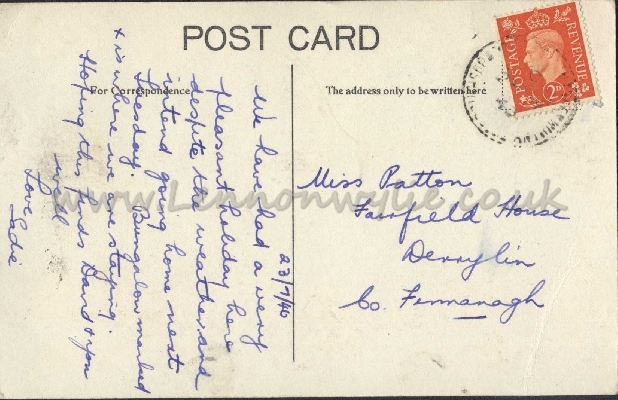 POST CARD
For Correspondence
The address only to be written here
POSTAGE REVENUE
2D
23/7/46
We have had a very
pleasant holiday here
despite the weather and
intend going home next
Tuesday. Bungalow marked
x is where we are staying.
Hoping this finds David & you
well
Love
Sadie
Miss Patton
Fairfield House
Derrylin
Co. Fermanagh
www.Lennonwylie.co.uk